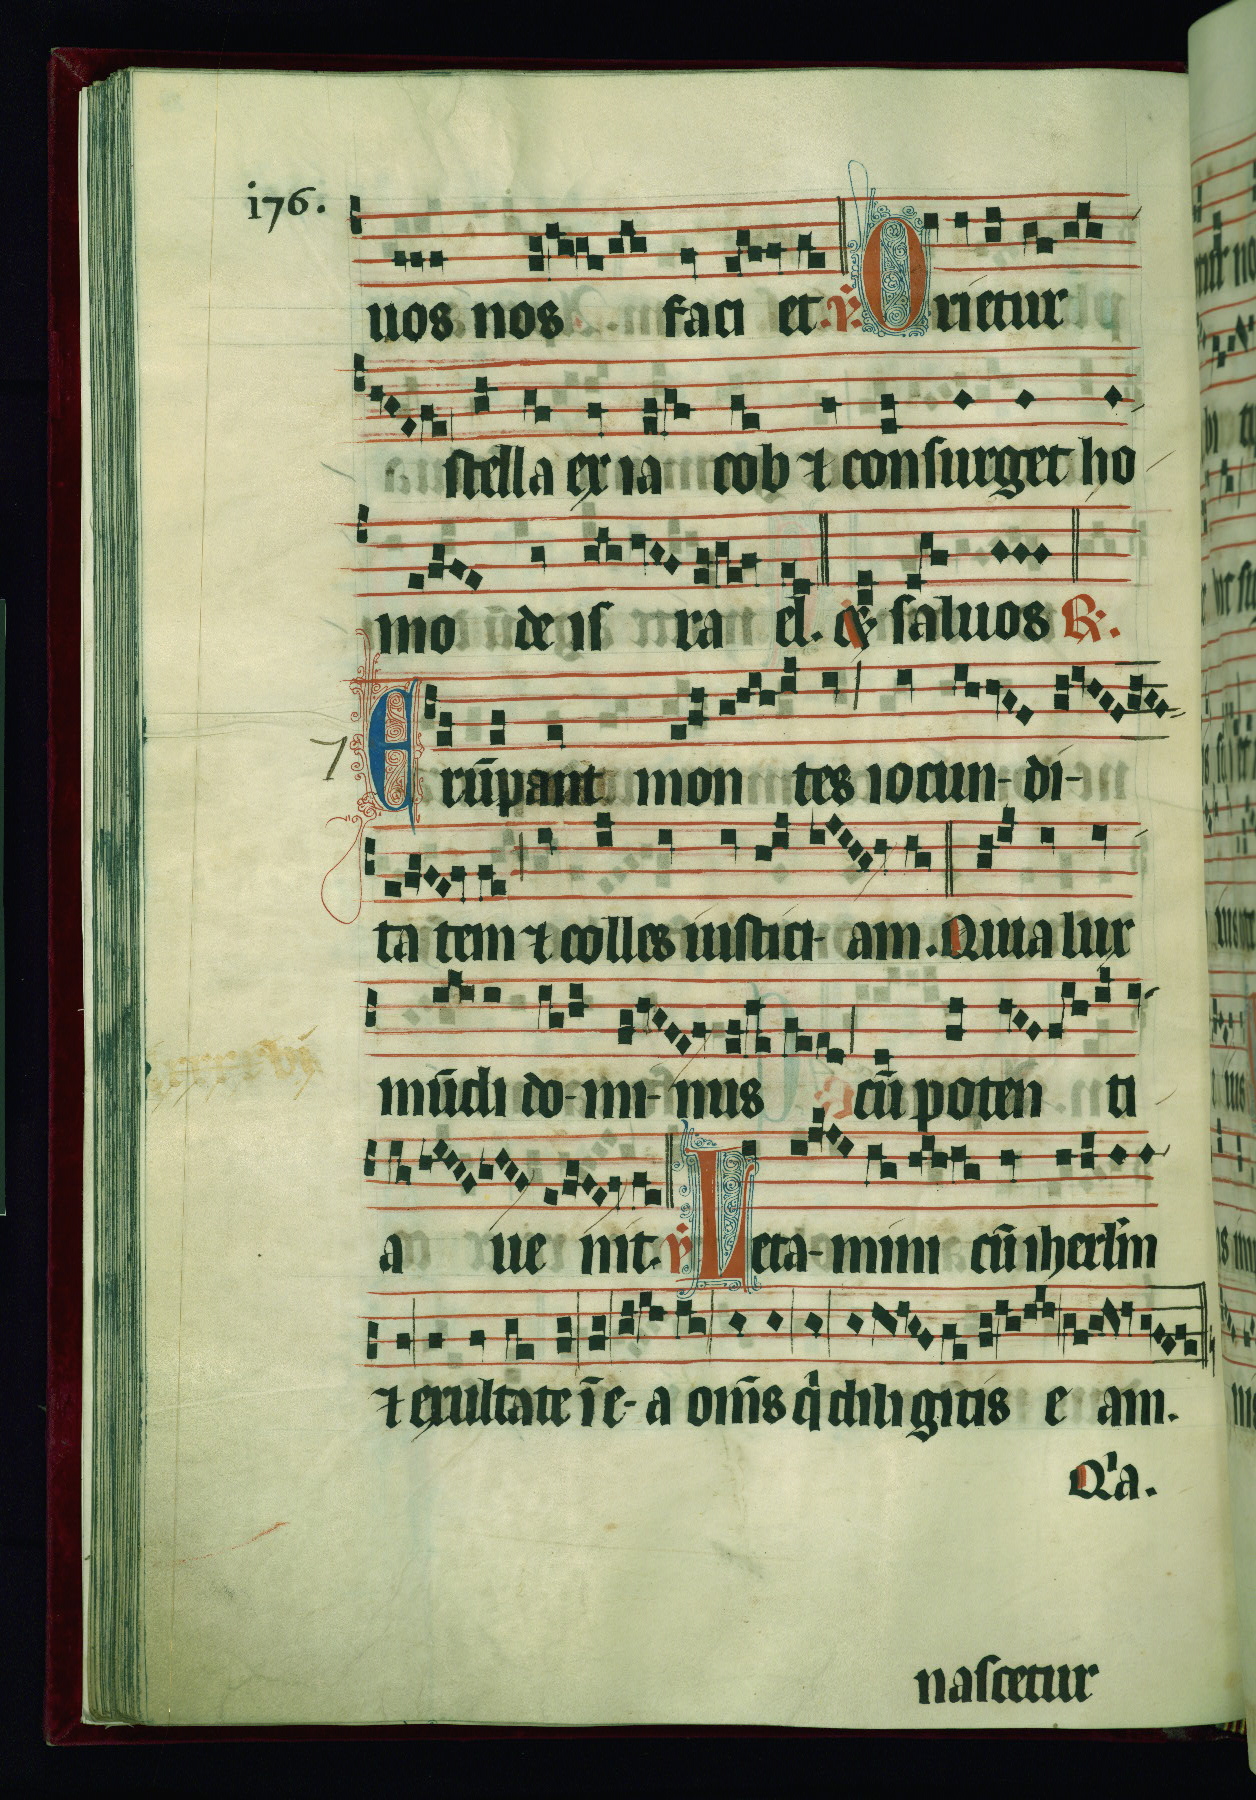 i76.
uos nos faci et. ℣. Orietur
stella ex ia cob ⁊ consurget ho
mo de is ra el. et saluos ℟.
7 Erūpant mon tes iocun- di-
ta tem ⁊ colles iustici- am. Quia lux
mūdi do- mi- nus cū poten ti
a ue nit. ℣ Leta- mini cū iherlm̄
⁊ exultate ī e- a om̄s q̇ diligitis e am.
Qͥa.
nascetur